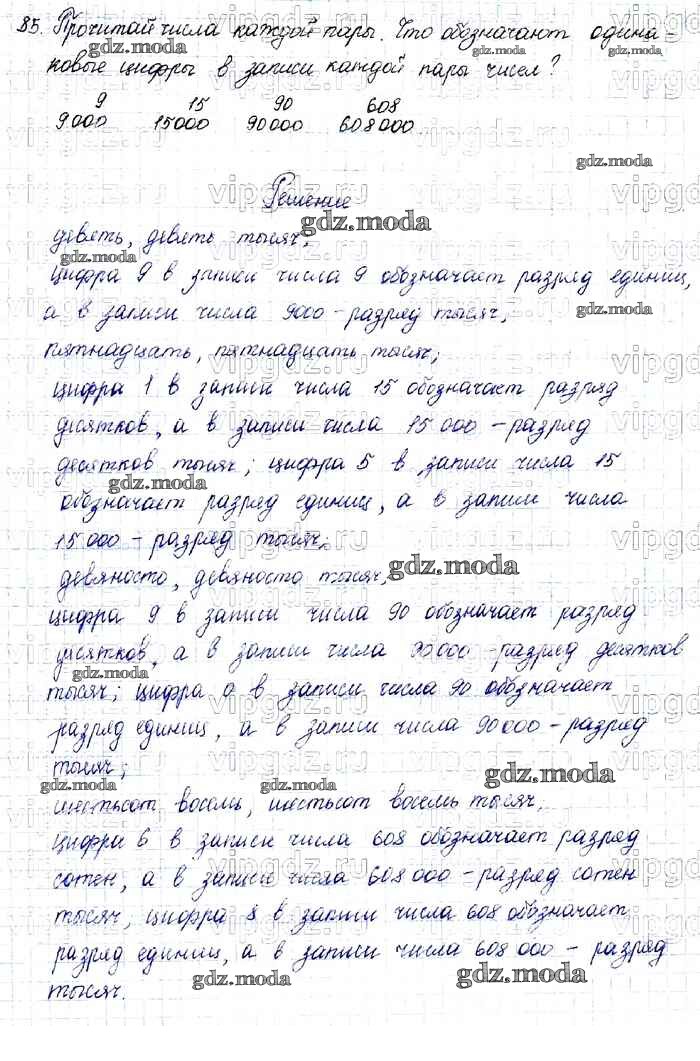 85. Прочитай числа каждой пары. Что обозначают одина-
ковые цифры в записи каждой пары чисел?
9 15 90 608
9000 15000 90000 608000
gdz.moda
Решение
gdz.moda
девять, девять тысяч;
gdz.moda
цифра 9 в записи числа 9 обозначает разряд единиц,
а в записи числа 9000 - разряд тысяч;
gdz.moda
пятнадцать, пятнадцать тысяч;
цифра 1 в записи числа 15 обозначает разряд
десятков, а в записи числа 15 000 - разряд
десятков тысяч; цифра 5 в записи числа 15
gdz.moda
обозначает разряд единиц, а в записи числа
15 000 - разряд тысяч;
gdz.moda
девяносто, девяносто тысяч,
цифра 9 в записи числа 90 обозначает разряд
десятков, а в записи числа 90000 - разряд десятков
gdz.moda
тысяч; цифра 0 в записи числа 90 обозначает
разряд единиц, а в записи числа 90 000 - разряд
тысяч;
gdz.moda gdz.moda gdz.moda
шестьсот восемь, шестьсот восемь тысяч,
цифра 6 в записи числа 608 обозначает разряд
сотен, а в записи числа 608 000 - разряд сотен
тысяч, цифра 8 в записи числа 608 обозначает
разряд единиц, а в записи числа 608 000 - разряд
gdz.moda gdz.moda
тысяч.